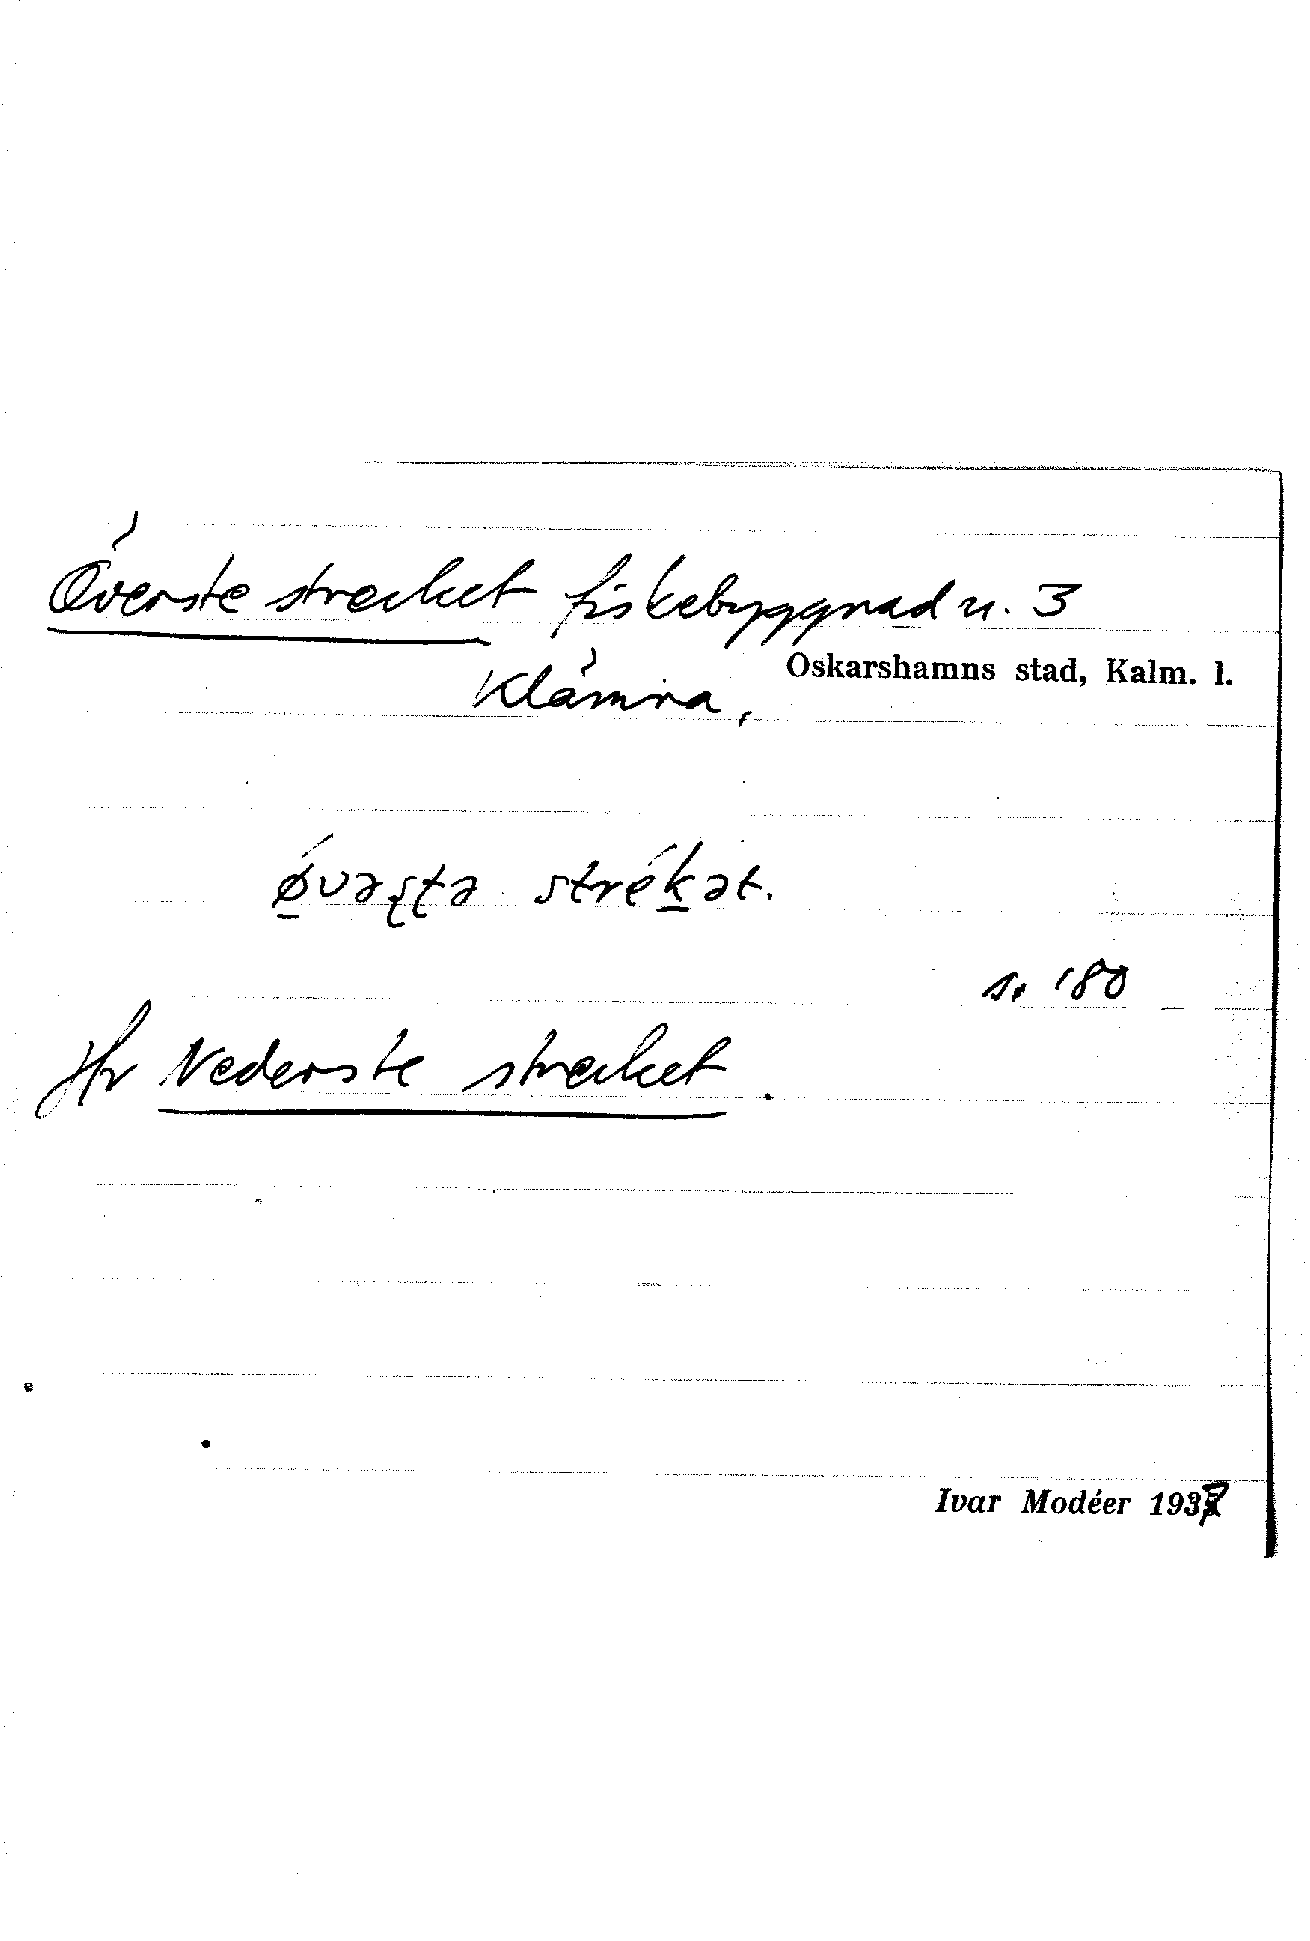 Överste strecket fiskebyggnad n. 3
Oskarshamns stad, Kalm. l.
Klämna,
ǿvəʂʈə strékət.
s. 180
Jfr Nederste strecket.
Ivar Modéer 1937